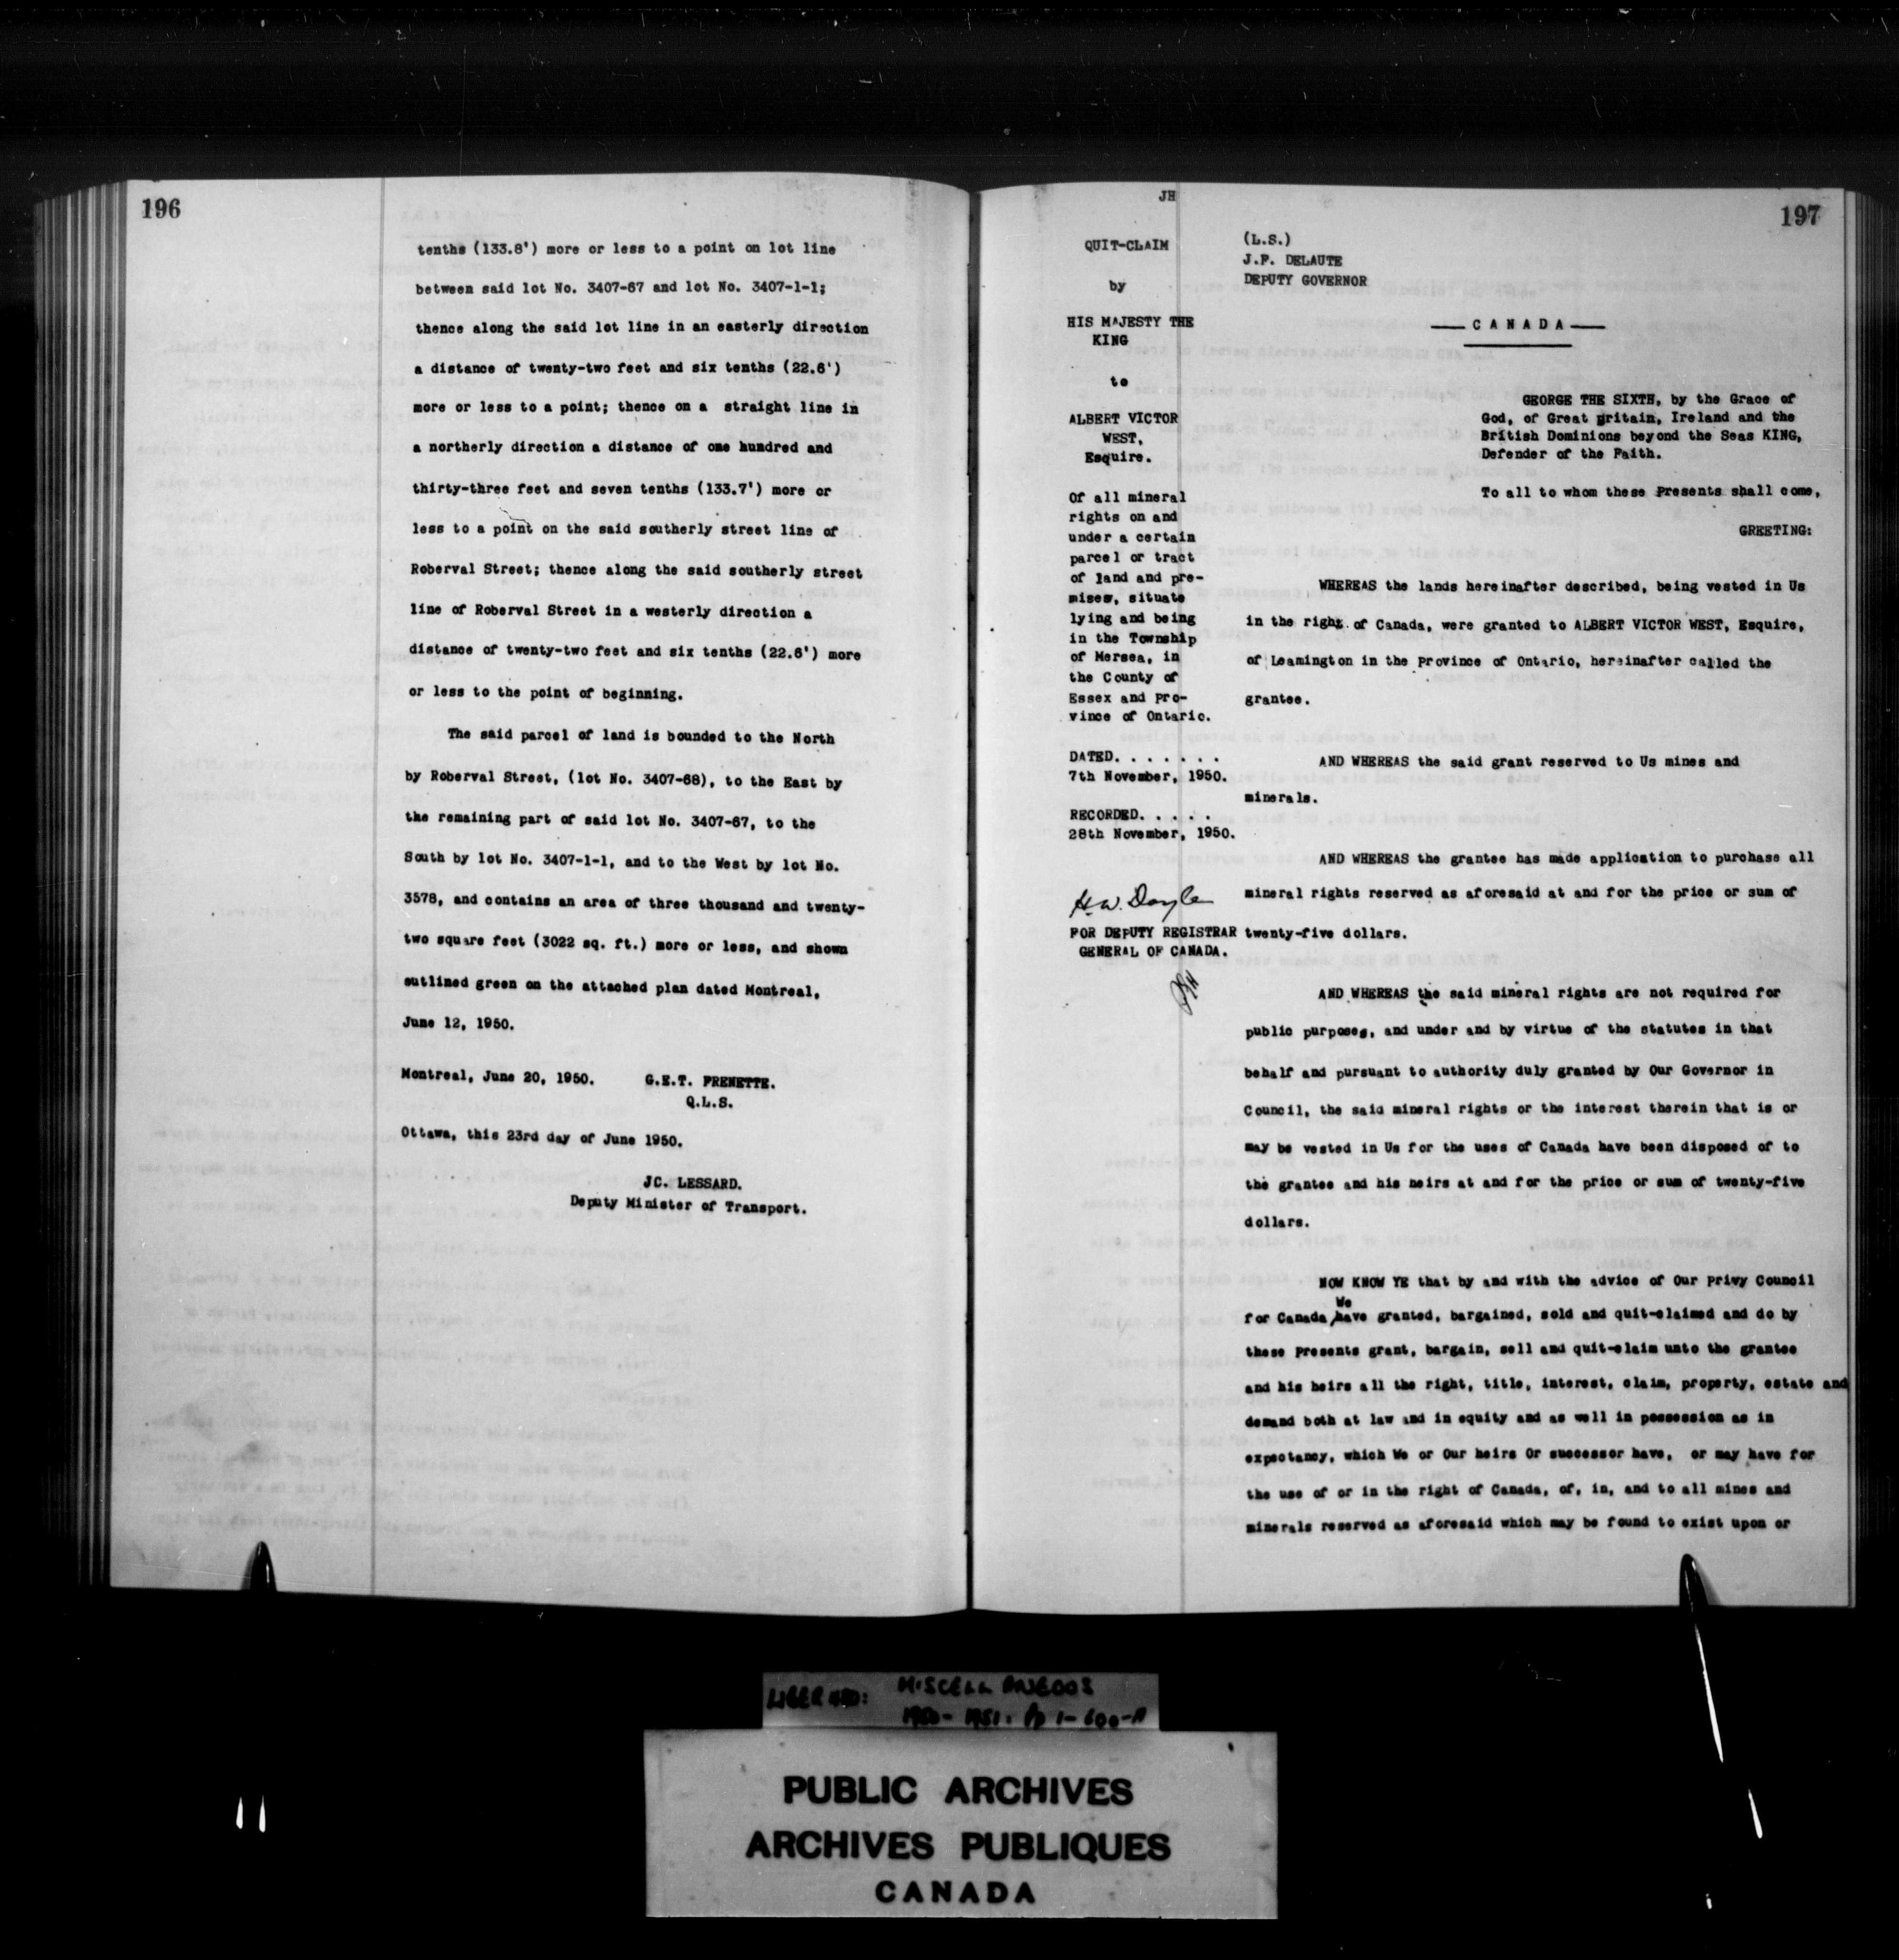 196
tenths (133.8') more or less to a point on lot line
between said lot No. 3407-67 and lot No. 3407-1-1;
thence along the said lot line in an easterly direction
a distance of twenty-two feet and six tenths (22.6')
more or less to a point; thence on a straight line in
a northerly direction a distance of one hundred and
thirty-three feet and seven tenths (133.7') more or
less to a point on the said southerly street line of
Roberval Street; thence along the said southerly street
line of Roberval Street in a westerly direction a
distance of twenty-two feet and six tenths (22.6') more
or less to the point of beginning.
The said parcel of land is bounded to the North
by Roberval Street, (lot No. 3407-68), to the East by
the remaining part of said lot No. 3407-67, to the
South by lot No. 3407-1-1, and to the West by lot No.
3578, and contains an area of three thousand and twenty-
two square feet (3022 sq. ft.) more or less, and shown
outlined green on the attached plan dated Montreal,
June 12, 1950.
Montreal, June 20, 1950. G.E.T. FRENETTE.
Q.L.S.
Ottawa, this 23rd day of June 1950.
JC. LESSARD.
Deputy Minister of Transport.
JH
197
QUIT-CLAIM
by
HIS MAJESTY THE
KING
to
ALBERT VICTOR
WEST,
Esquire.
Of all mineral
rights on and
under a certain
parcel or tract
of land and pre-
mises, situate
lying and being
in the Township
of Mersea, in
the County of
Essex and Pro-
vince of Ontario.
DATED. . . . . . .
7th November, 1950.
RECORDED. . . . .
28th November, 1950.
H.W. Doyle
FOR DEPUTY REGISTRAR
GENERAL OF CANADA.
(L.S.)
J.F. DELAUTE
DEPUTY GOVERNOR
CANADA
GEORGE THE SIXTH, by the Grace of
God, of Great Britain, Ireland and the
British Dominions beyond the Seas KING,
Defender of the Faith.
To all to whom these Presents shall come,
GREETING:
WHEREAS the lands hereinafter described, being vested in Us
in the right of Canada, were granted to ALBERT VICTOR WEST, Esquire,
of Leamington in the Province of Ontario, hereinafter called the
grantee.
AND WHEREAS the said grant reserved to Us mines and
minerals.
AND WHEREAS the grantee has made application to purchase all
mineral rights reserved as aforesaid at and for the price or sum of
twenty-five dollars.
AND WHEREAS the said mineral rights are not required for
public purposes, and under and by virtue of the statutes in that
behalf and pursuant to authority duly granted by Our Governor in
Council, the said mineral rights or the interest therein that is or
may be vested in Us for the uses of Canada have been disposed of to
the grantee and his heirs at and for the price or sum of twenty-five
dollars.
NOW KNOW YE that by and with the advice of Our Privy Council
We
for Canada have granted, bargained, sold and quit-claimed and do by
these Presents grant, bargain, sell and quit-claim unto the grantee
and his heirs all the right, title, interest, claim, property, estate and
demand both at law and in equity and as well in possession as in
expectancy, which We or Our heirs Or successor have, or may have for
the use of or in the right of Canada, of, in, and to all mines and
minerals reserved as aforesaid which may be found to exist upon or
LIBER 480: MISCELLANEOUS
1950-1951: Pp 1-600-A
PUBLIC ARCHIVES
ARCHIVES PUBLIQUES
CANADA